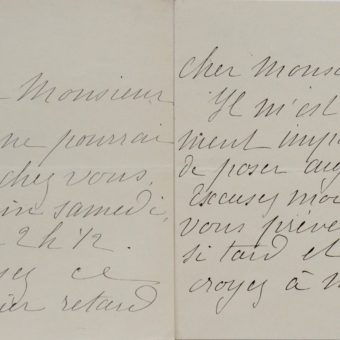 Monsieur
ne pourrai
chez vous,
samedi,
2 h 1/2.
ce
retard
Cher Mons
Il m'est
ment imp
de poser auj
Excusez moi
vous préve
si tard et
croyez à m